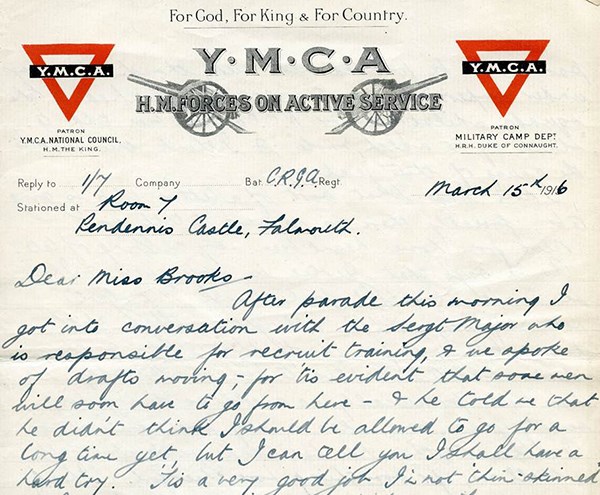 For God, For King & For Country.
Y·M·C·A
H.M. FORCES ON ACTIVE SERVICE
Y.M.C.A.
PATRON
Y.M.C.A. NATIONAL COUNCIL,
H.M. THE KING.
Y.M.C.A.
PATRON
MILITARY CAMP DEPT.
H.R.H. DUKE OF CONNAUGHT.
Reply to 1/7 Company Bat. C.R.G.A. Regt.
March 15th 1916
Stationed at Room 7
Pendennis Castle, Falmouth.
Dear Miss Brooks
After parade this morning I
got into conversation with the Sergt Major who
is responsible for recruit training, & we spoke
of drafts moving, - for 'tis evident that some men
will soon have to go from here - & he told me that
he didn't think I should be allowed to go for a
long time yet, but I can tell you I shall have a
hard try. 'Tis a very good job I'm not "thin-skinned"